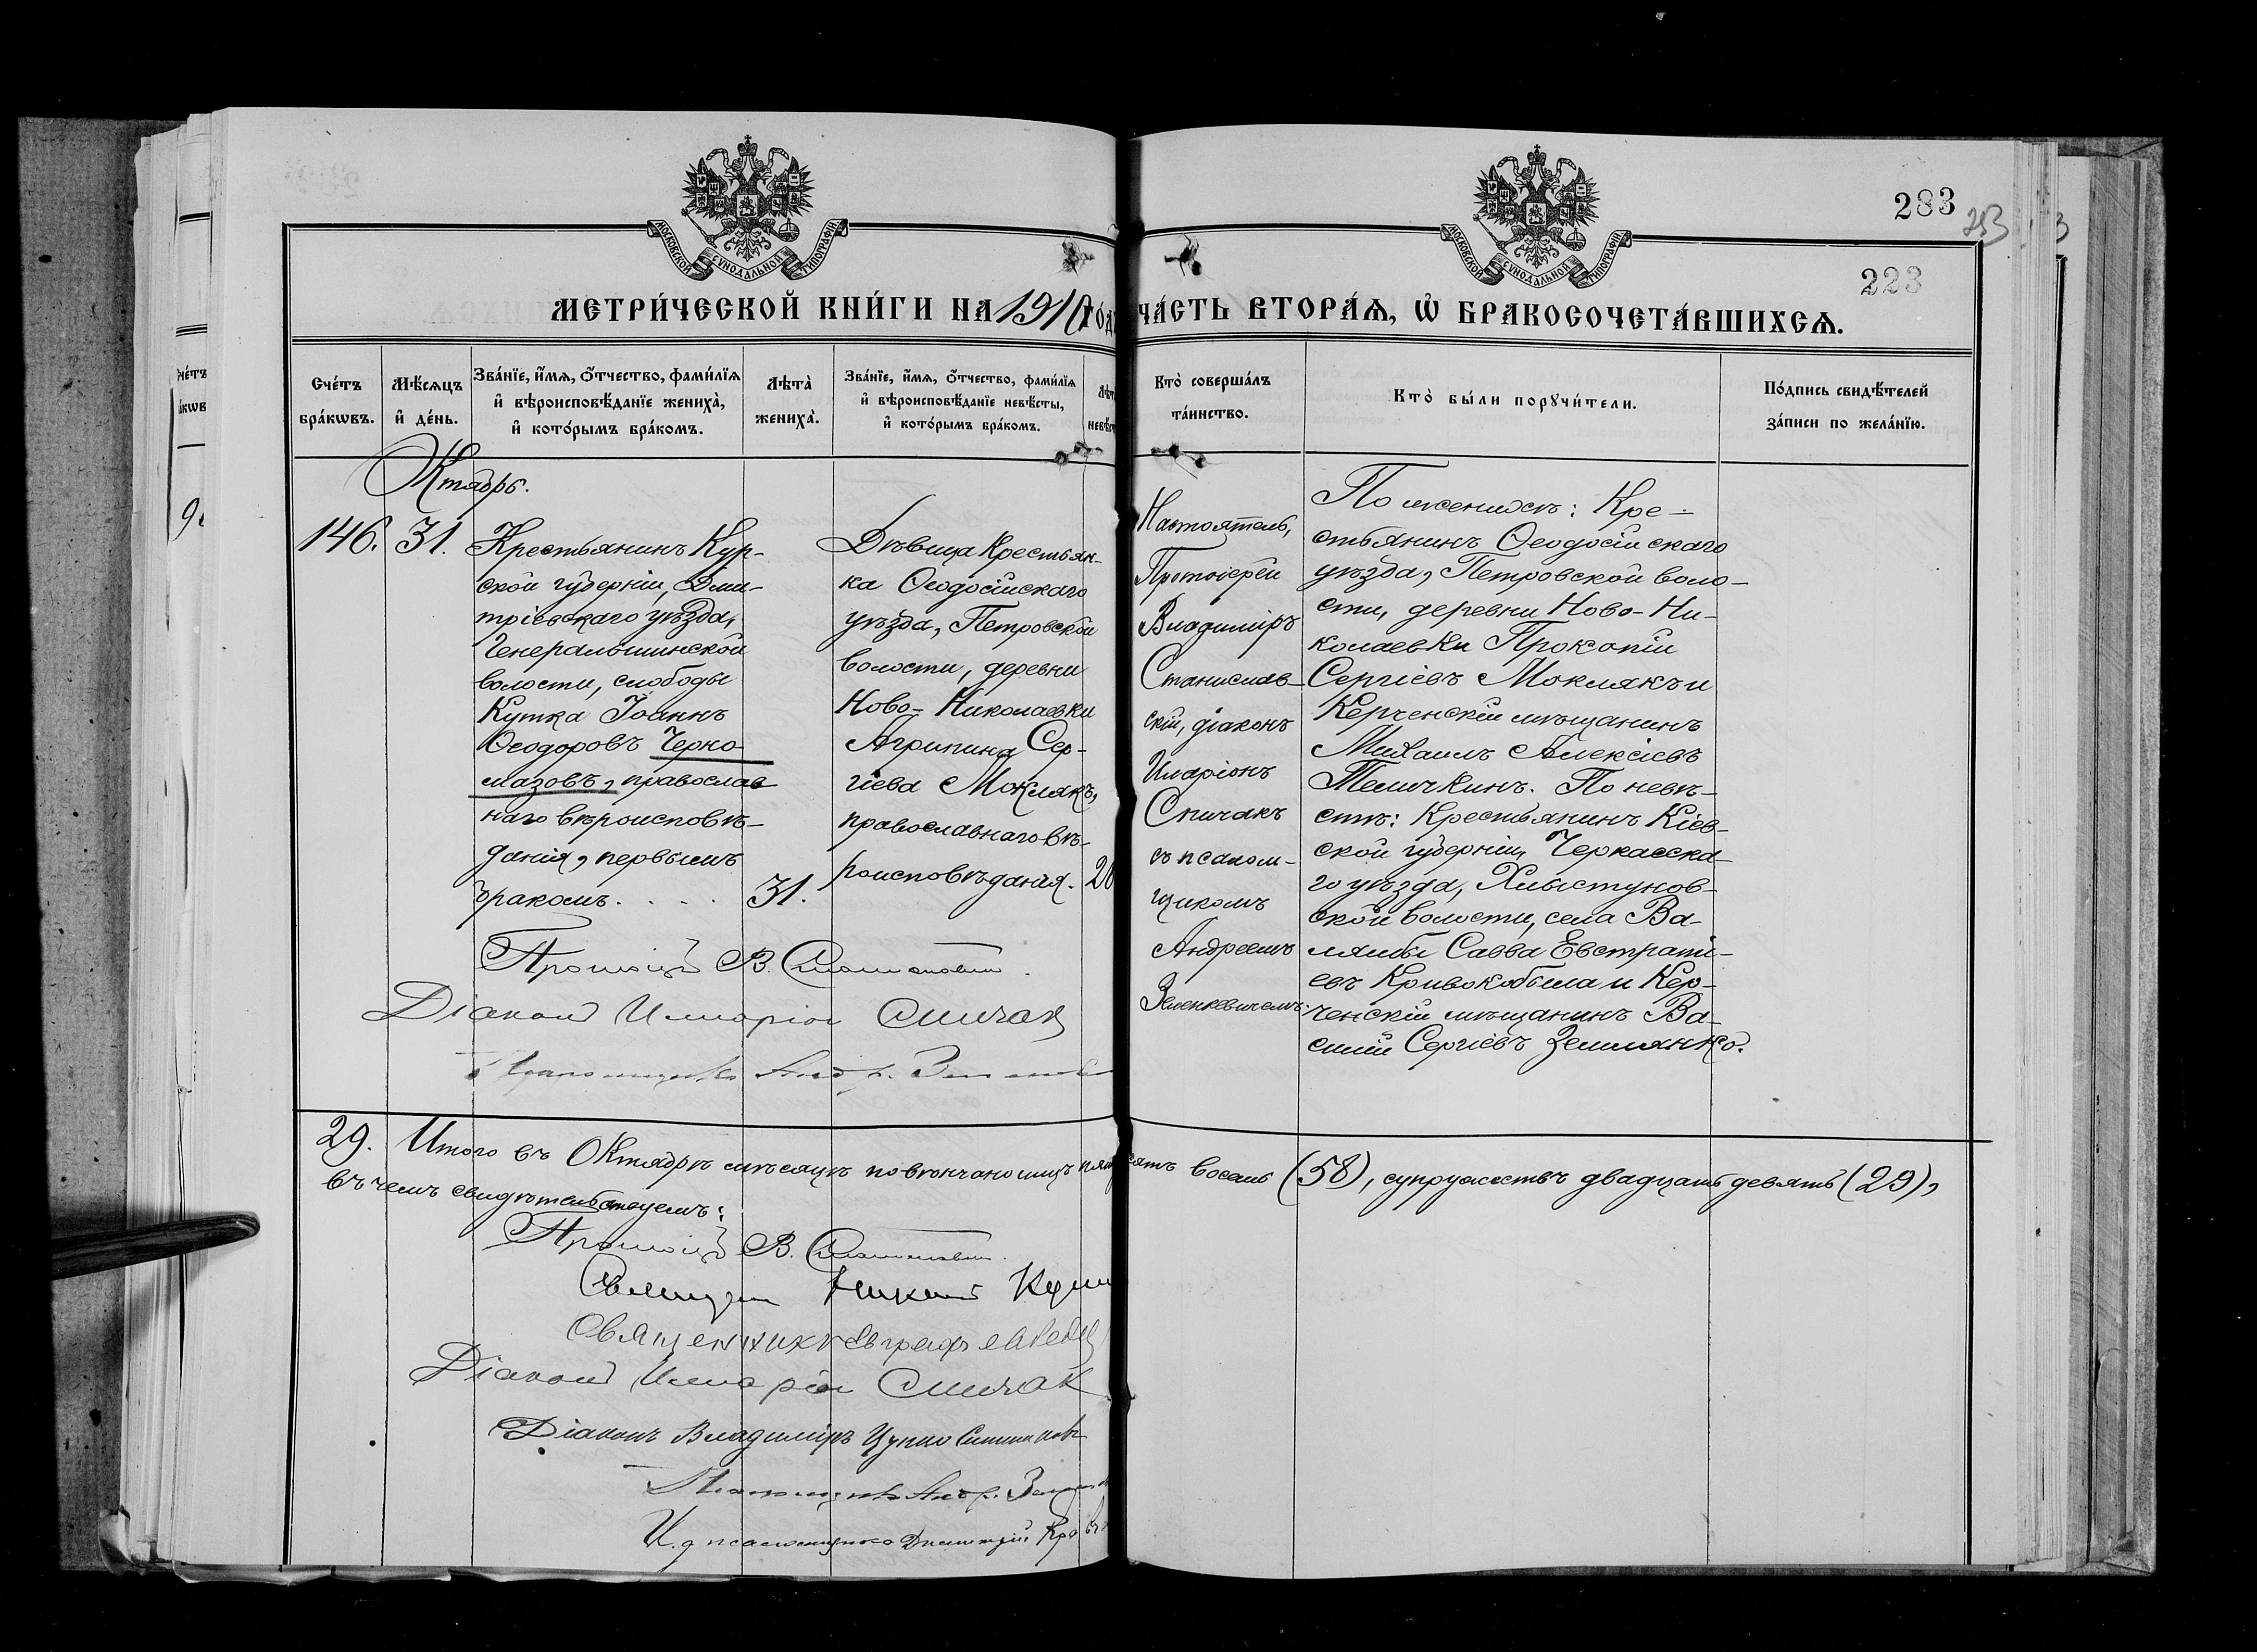 283
253
223
МОСКОВСКОЙ СѴНОДАЛЬНОЙ ТИПОГРАФІИ
МОСКОВСКОЙ СѴНОДАЛЬНОЙ ТИПОГРАФІИ
МЕТРИ́ЧЕСКОЙ КНИ́ГИ НА 1910 го́д
ЧА́СТЬ ВТОРА́Ѧ, Ѽ БРАКОСОЧЕТА́ВШИХСѦ.
Сче́тъ бра́кѡвъ.
Мѣ́сѧцъ и҆ де́нь.
Зва́нїе, и҆́мѧ, ѻ҆́тчество, фами́лїѧ
и҆ вѣроисповѣ́данїе жениха̀,
и҆ кото́рымъ бра́комъ.
Лѣта̀ жениха̀.
Зва́нїе, и҆́мѧ, ѻ҆́тчество, фами́лїѧ
и҆ вѣроисповѣ́данїе невѣ́сты,
и҆ кото́рымъ бра́комъ.
Кто̀ соверша́лъ
та́инство.
Кто̀ бы́ли порꙋчи́тели.
По́дпись свидѣ́телей
за́писи по жела́нїю.
Октябрь.
146. 31.
Крестьянинъ Кур-
ской губерніи, Дми-
тріевскаго уѣзда,
Генеральшинской
волости, слободы
Кутка Іоаннъ
Ѳеодоровъ Черно-
мазовъ, православ
наго вѣроисповѣ-
данія, первымъ
бракомъ. . . . .
31.
Дѣвица Крестьян-
ка Ѳеодосійскаго
уѣзда, Петровской
волости, деревни
Ново-Николаевки
Агрипина Сер-
гіева Моклякъ,
православнаго вѣ-
роисповѣданія.
20
Настоятель,
Протоіерей
Владиміръ
Станислав-
скій, діаконъ
Иларіонъ
Спичакъ
съ псалом-
щикомъ
Андреемъ
Зеленкевичемъ.
По женихѣ: Кре-
стьянинъ Ѳеодосійскаго
уѣзда, Петровской воло-
сти, деревни Ново-Ни-
колаевки Прокопій
Сергіевъ Моклякъ и
Керченскій мѣщанинъ
Михаилъ Алексіевъ
Теличкинъ. По невѣ-
стѣ: Крестьянинъ Кіев-
ской губерніи, Черкасска-
го уѣзда, Хлыстунов-
ской волости, села Ва-
лявы Савва Евстраті-
евъ Кривокобыла и Кер-
ченскій мѣщанинъ Ва-
силій Сергіевъ Землянко.
Протоіер. В. Станиславскій.
Діаконъ Иларіон Спичак
Псаломщикъ Андр.
29. Итого въ Октябрѣ мѣсяцѣ повѣнчано лицъ пятьдесятъ восемь (58), супружествъ двадцать девять (29),
въ чемъ свидѣтельствуемъ:
Протоіер. В. Станиславскій.
Священник
Священникъ Евграфъ
Діаконъ Иларіон Спичак
Діаконъ Владиміръ Цупко
Псаломщикъ Андр.
И. д. псаломщика Димитрій